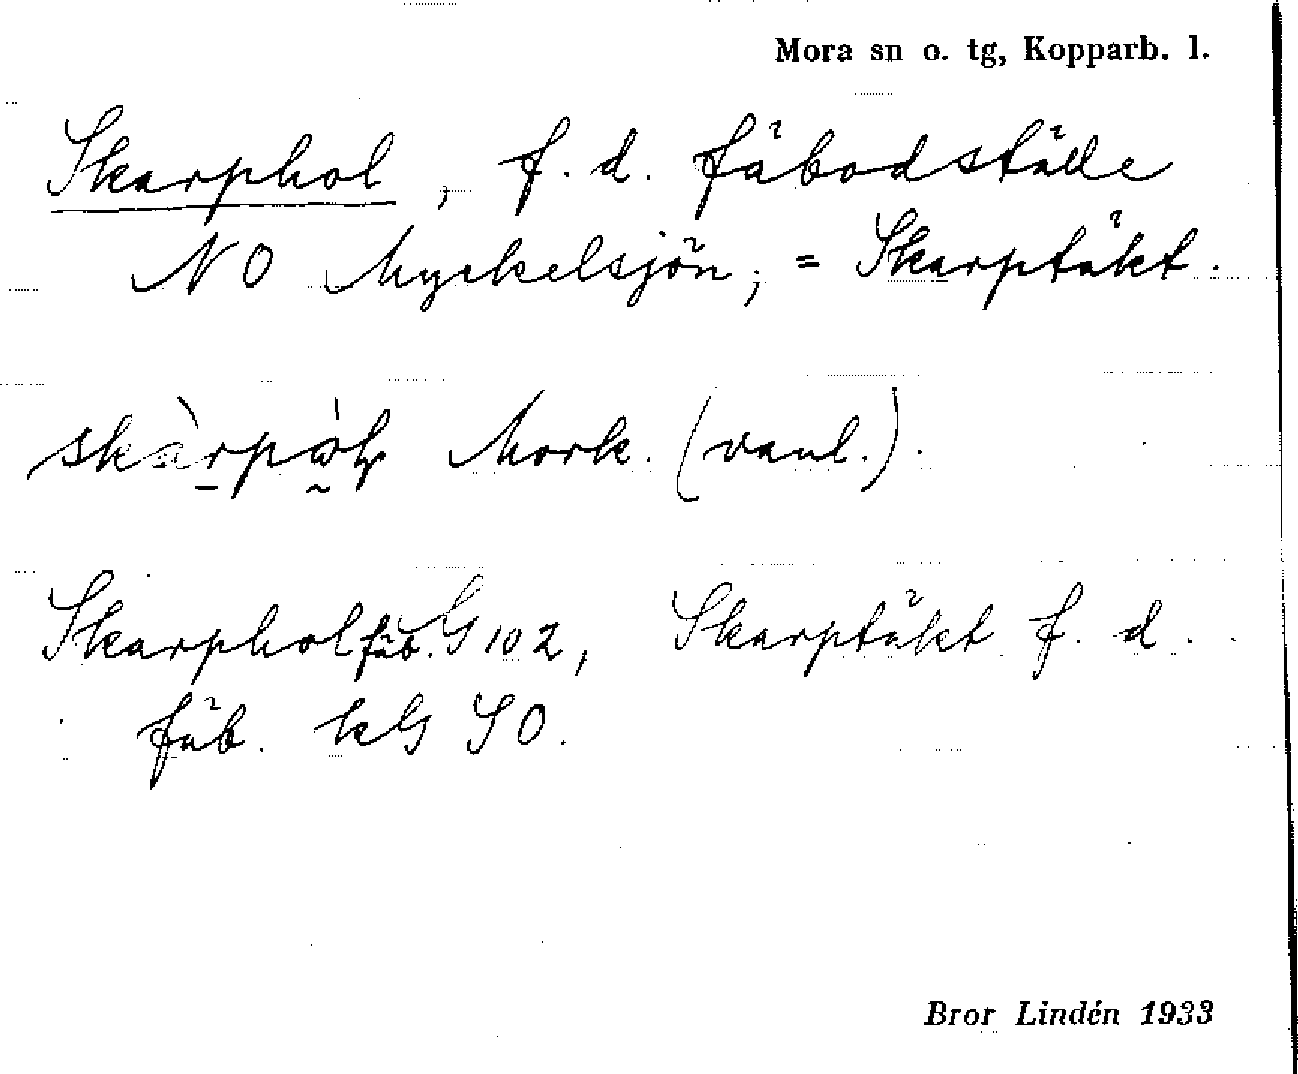 Mora sn o. tg, Kopparb. l.
Skarphol, f. d. fäbodställe
NO Myckelsjön; = Skarptäkt.
Mork. (vanl.).
Skarphol fäb. G 102, Skarptäkt f. d.
fäb. SO.
Bror Lindén 1933